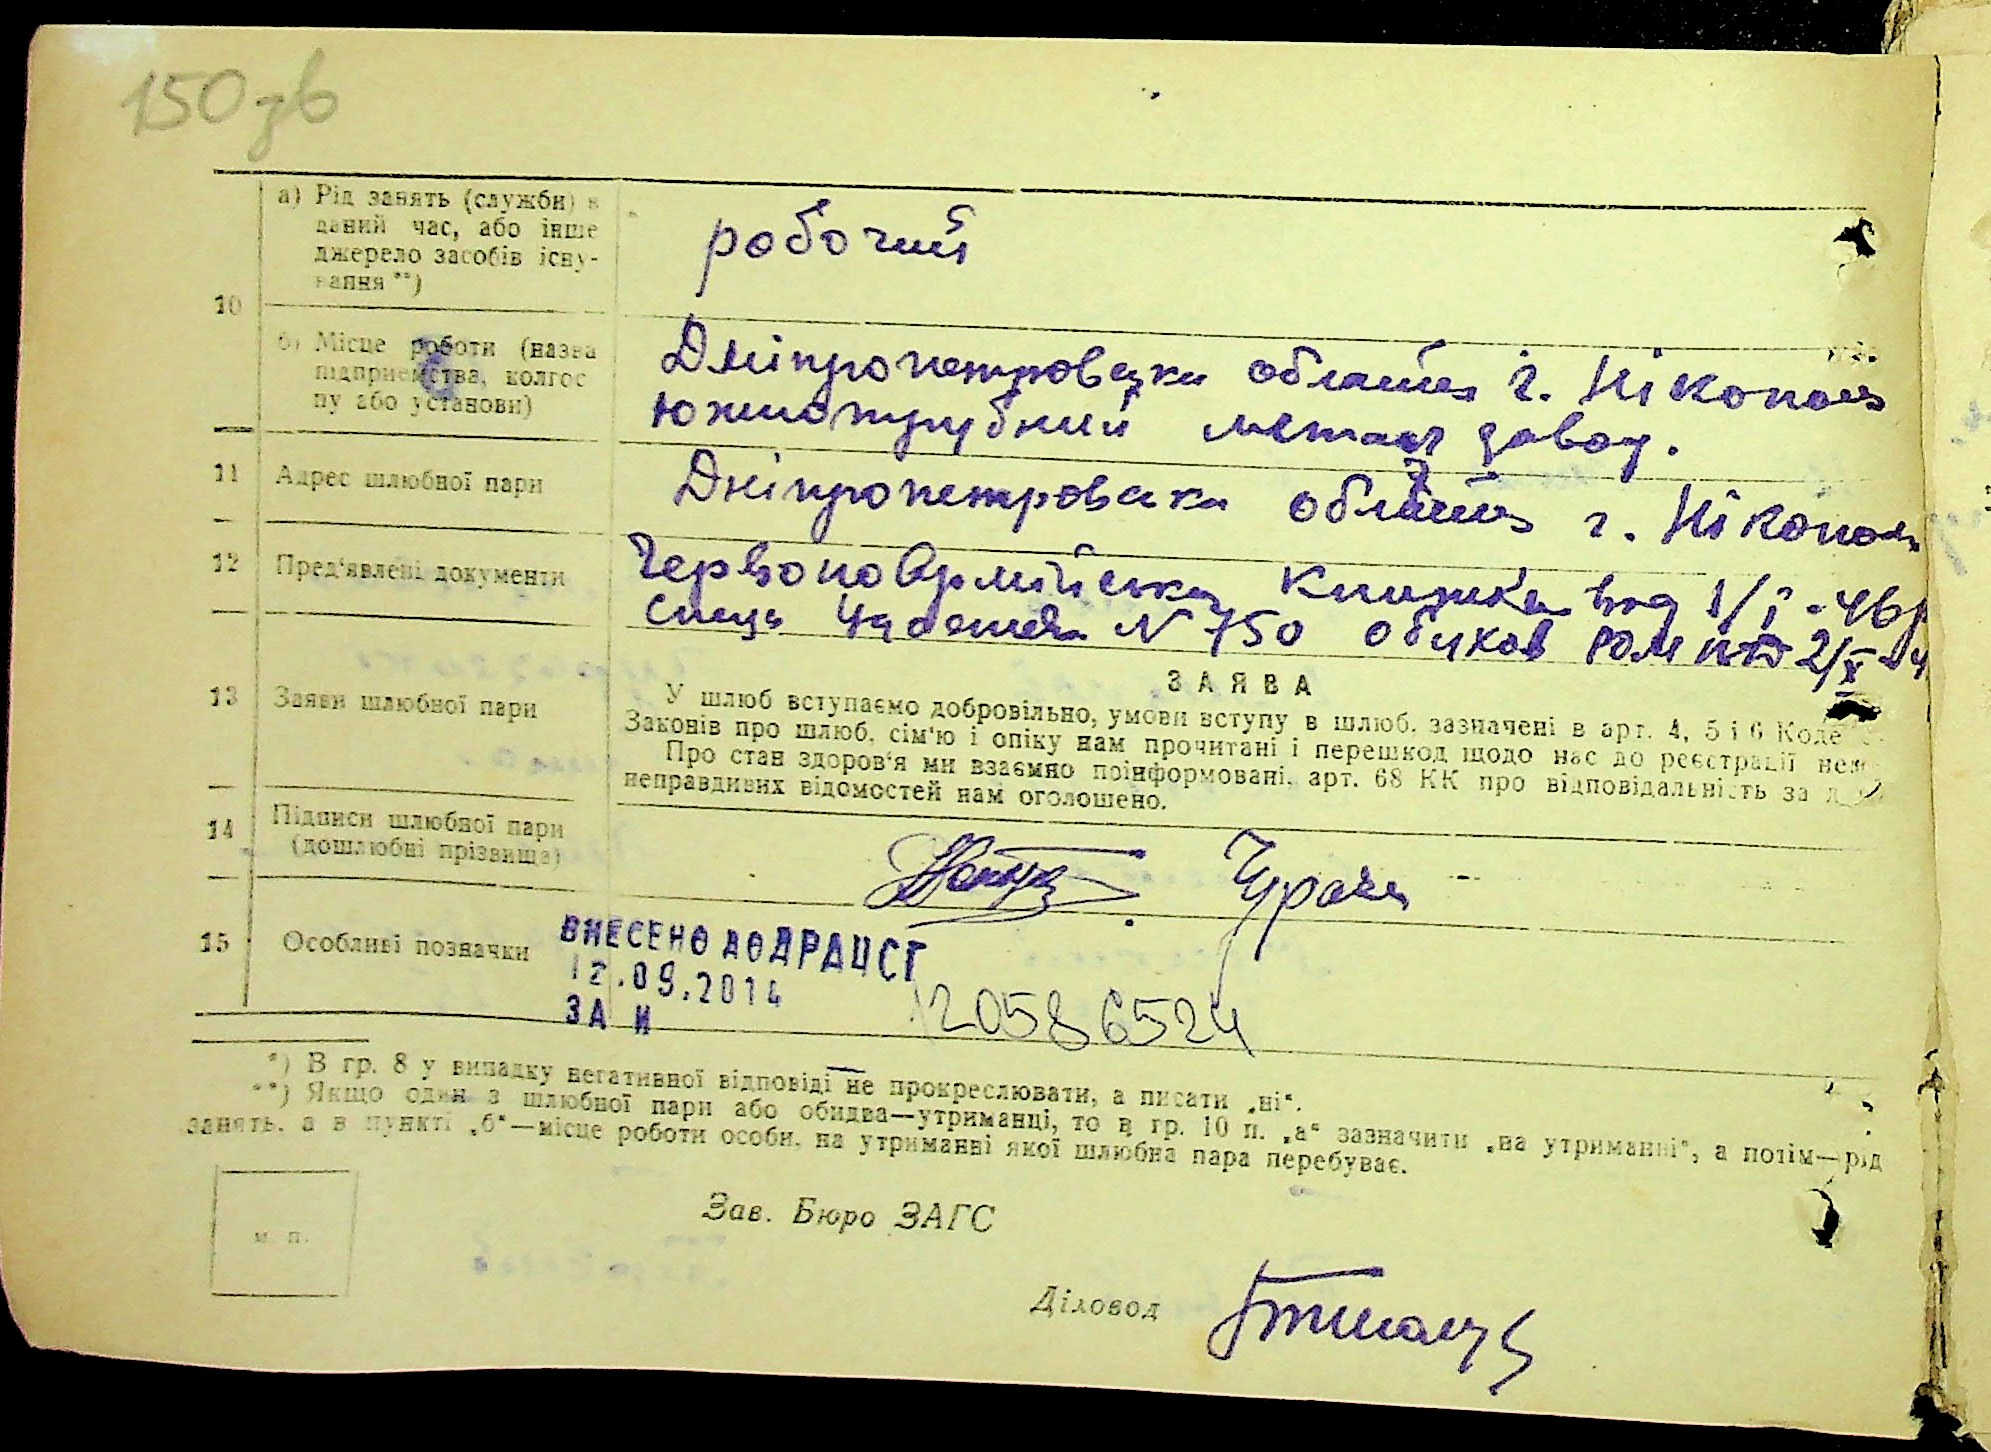 150 зв
а) Рід занять (служби) в
даний час, або інше
джерело засобів існу-
вання **)
робочий
10
б) Місце роботи (назва
підприємства, колгос
пу або установи)
Дніпропетровська область г. Нікополь
Южнотрубний метал завод.
11 Адрес шлюбної пари
Дніпропетровська область г. Нікополь
12 Пред'явлені документи
Червоноармійська Книжка від 1/I-46р
N 750
13 Заяви шлюбної пари
ЗАЯВА
У шлюб вступаємо добровільно, умови вступу в шлюб, зазначені в арт. 4, 5 і 6 Коде
Законів про шлюб, сім'ю і опіку нам прочитані і перешкод щодо нас до реєстрації нем
Про стан здоров'я ми взаємно поінформовані, арт. 68 КК про відповідальність за
неправдивих відомостей нам оголошено.
14 Підписи шлюбної пари
(дошлюбні прізвища)
15 Особливі позначки
ВНЕСЕНО ДО ДРАЦСГ
12.09.2014
ЗА N 120586524
*) В гр. 8 у випадку негативної відповіді не прокреслювати, а писати „ні“.
**) Якщо один з шлюбної пари або обидва—утриманці, то в гр. 10 п. „а“ зазначити „на утриманні“, а потім—рід
занять, а в пункті „б“—місце роботи особи, на утриманні якої шлюбна пара перебуває.
м. п.
Зав. Бюро ЗАГС
Діловод